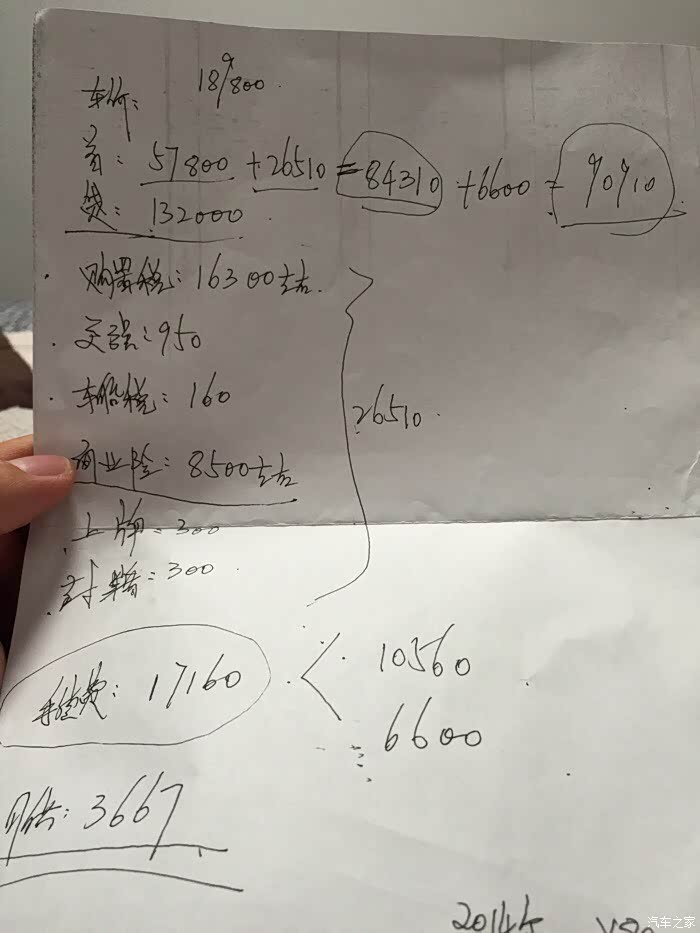 车价: 189800
首: 57800 + 26510 = 84310 + 6600 = 90910
贷: 132000
购置税: 16300左右
交强: 950
车船税: 160
26510
商业险: 8500左右
上牌: 300
300
手续费: 17160
10560
6600
月供: 3667
汽车之家